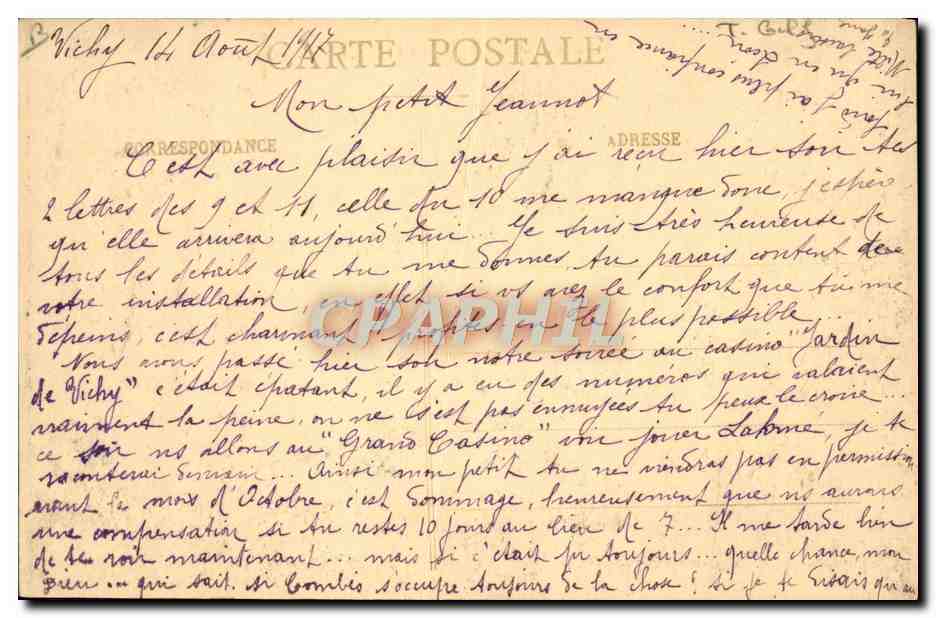 Vichy 14 Août 1917
CARTE POSTALE
Mon petit Jeannot
CORRESPONDANCE
ADRESSE
C'est avec plaisir que j'ai reçu hier soir tes
2 lettres des 9 et 11, celle du 10 me manque donc, j'espère
qu'elle arrivera aujourd'hui... Je suis très heureuse de
tous les détails que tu me donnes tu parais content de
votre installation, en effet si vs avez le confort que tu me
dépeins, c'est charmant profites en le plus possible...
CPAPHIL
Nous avons passé hier soir notre soirée au casino "Jardin
de Vichy" c'était épatant, il y a eu des numéros qui valaient
vraiment la peine, on ne s'est pas ennuyées tu peux le croire...
ce soir ns allons au "Grand Casino" voir jouer Lakmé, je te
raconterai demain... Ainsi mon petit tu ne viendras pas en permission
avant le mois d'Octobre, c'est dommage, heureusement que ns aurons
une compensation si tu restes 10 jours au lieu de 7... Il me tarde bien
de te voir maintenant... mais si c'était pr toujours... quelle chance, mon
Dieu... qui sait si Combes s'occupe toujours de la chose? si je te disais qu'au
fond j'ai plus confiance en
lui qu'en